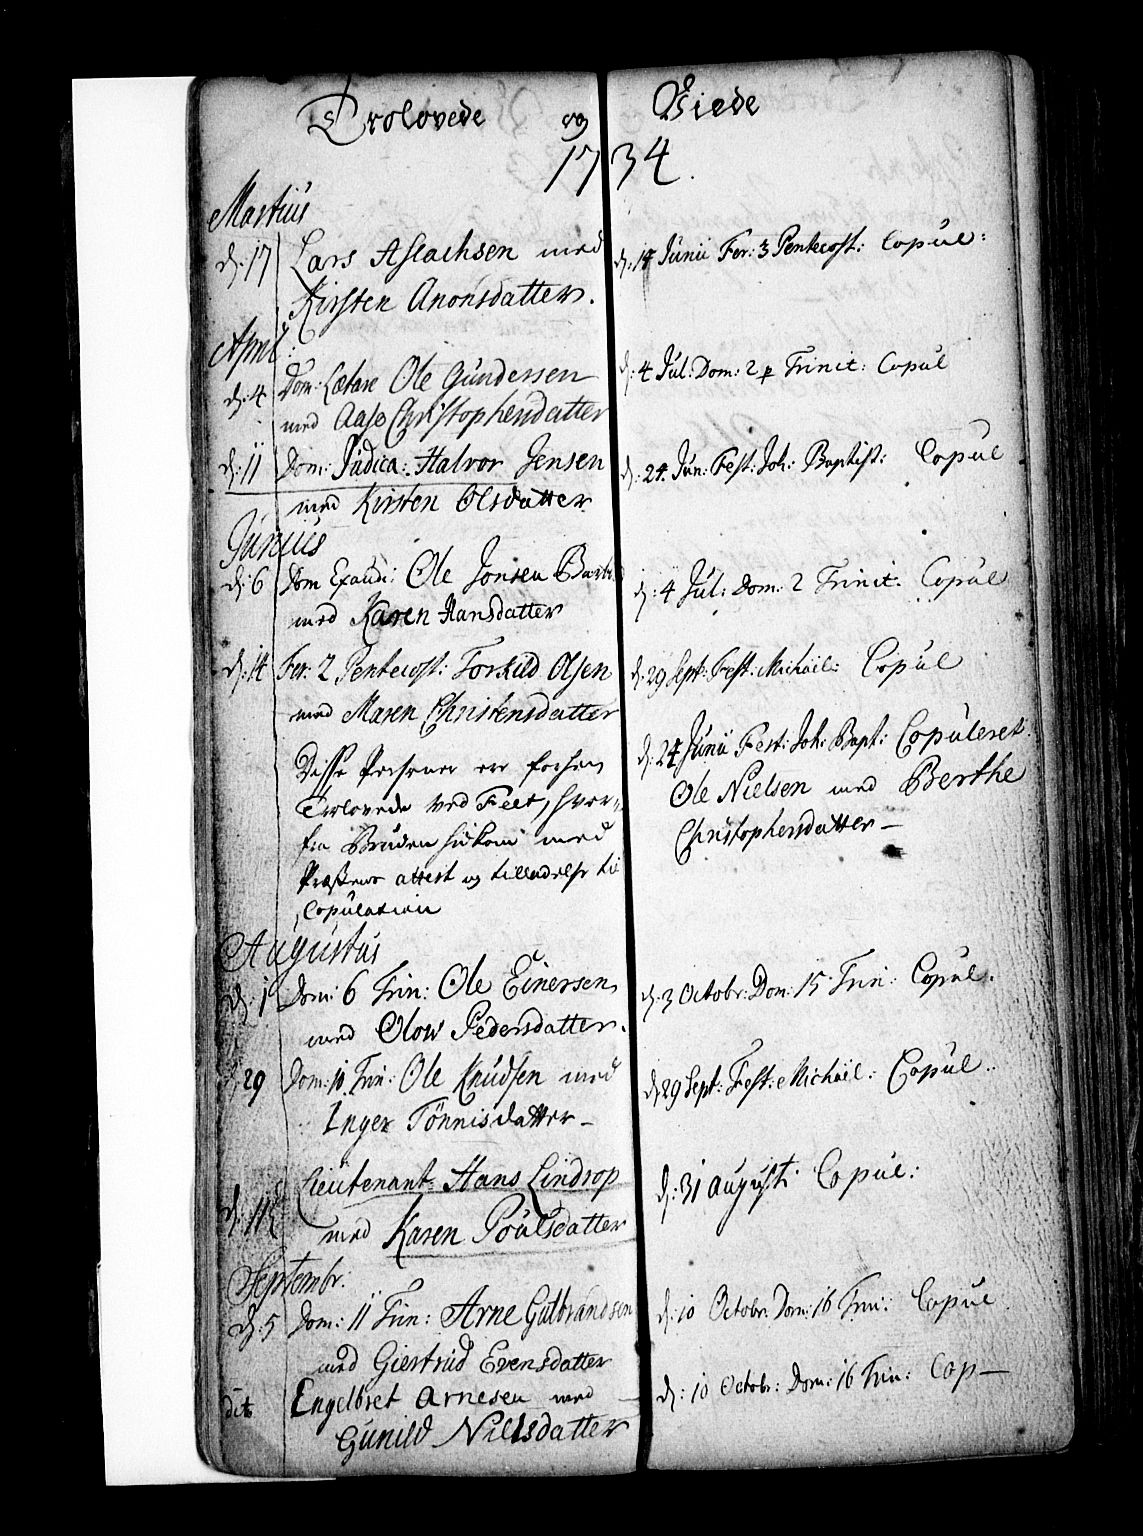 Trolovede og Viede
1734.
Martius
d. 17 Lars Aslachsen med d. 14 Junii Fer: 3 Pentecost: Copul:
Kirsten Anonsdatter.
April:
d. 4 Dom: Lætare Ole Gundersen d: 4 Jul: Dom: 2 p Trinit: Copul
med Aase Christophersdatter
d: 11 Dom: Judica: Halvor Jensen d: 24. Jun: Fest: Joh: Baptist: Copul
med Kirsten Olsdatter
Junius
d: 6 Dom Exaudi: Ole Jonsen d: 4 Jul: Dom: 2 Trinit: Copul
med Karen Hansdatter
d: 14 Fer: 2 Pentecost: Torkild Olsen d: 29 Sept: Fest: Michäil: Copul
med Maren Christensdatter
Disse Persener er forhen d: 24 Junii Fest: Joh: Bapt: Copuleret
Trolovede ved Feet, hvor- Ole Nielsen med Berthe
fra Bruden hidkom med Christophersdatter —
Præstens attest og tilladelse til
Copulation
Augustus
d: 1 Dom: 6 Trin: Ole Einersen d: 3 Octobr: Dom: 15 Trin: Copul.
med Olow Pedersdatter.
d: 29 Dom: 10 Trin: Ole Knudsen med d: 29 Sept: Fest: Michäil: Copul..
Inger Tönnisdatter —
Lieutenant Hans Lindrop d: 31 August: Copul:
d: 11 med Karen Poulsdatter
Septembr:
d: 5 Dom: 11 Trin: Arne Gulbrandsen d: 10 Octobr: Dom: 16 Trin: Copul
med Giertrud Evensdatter
dito Engelbret Arnesen med — d: 10 Octobr: Dom: 16 Trin: Cop —
Gunild Nielsdatter